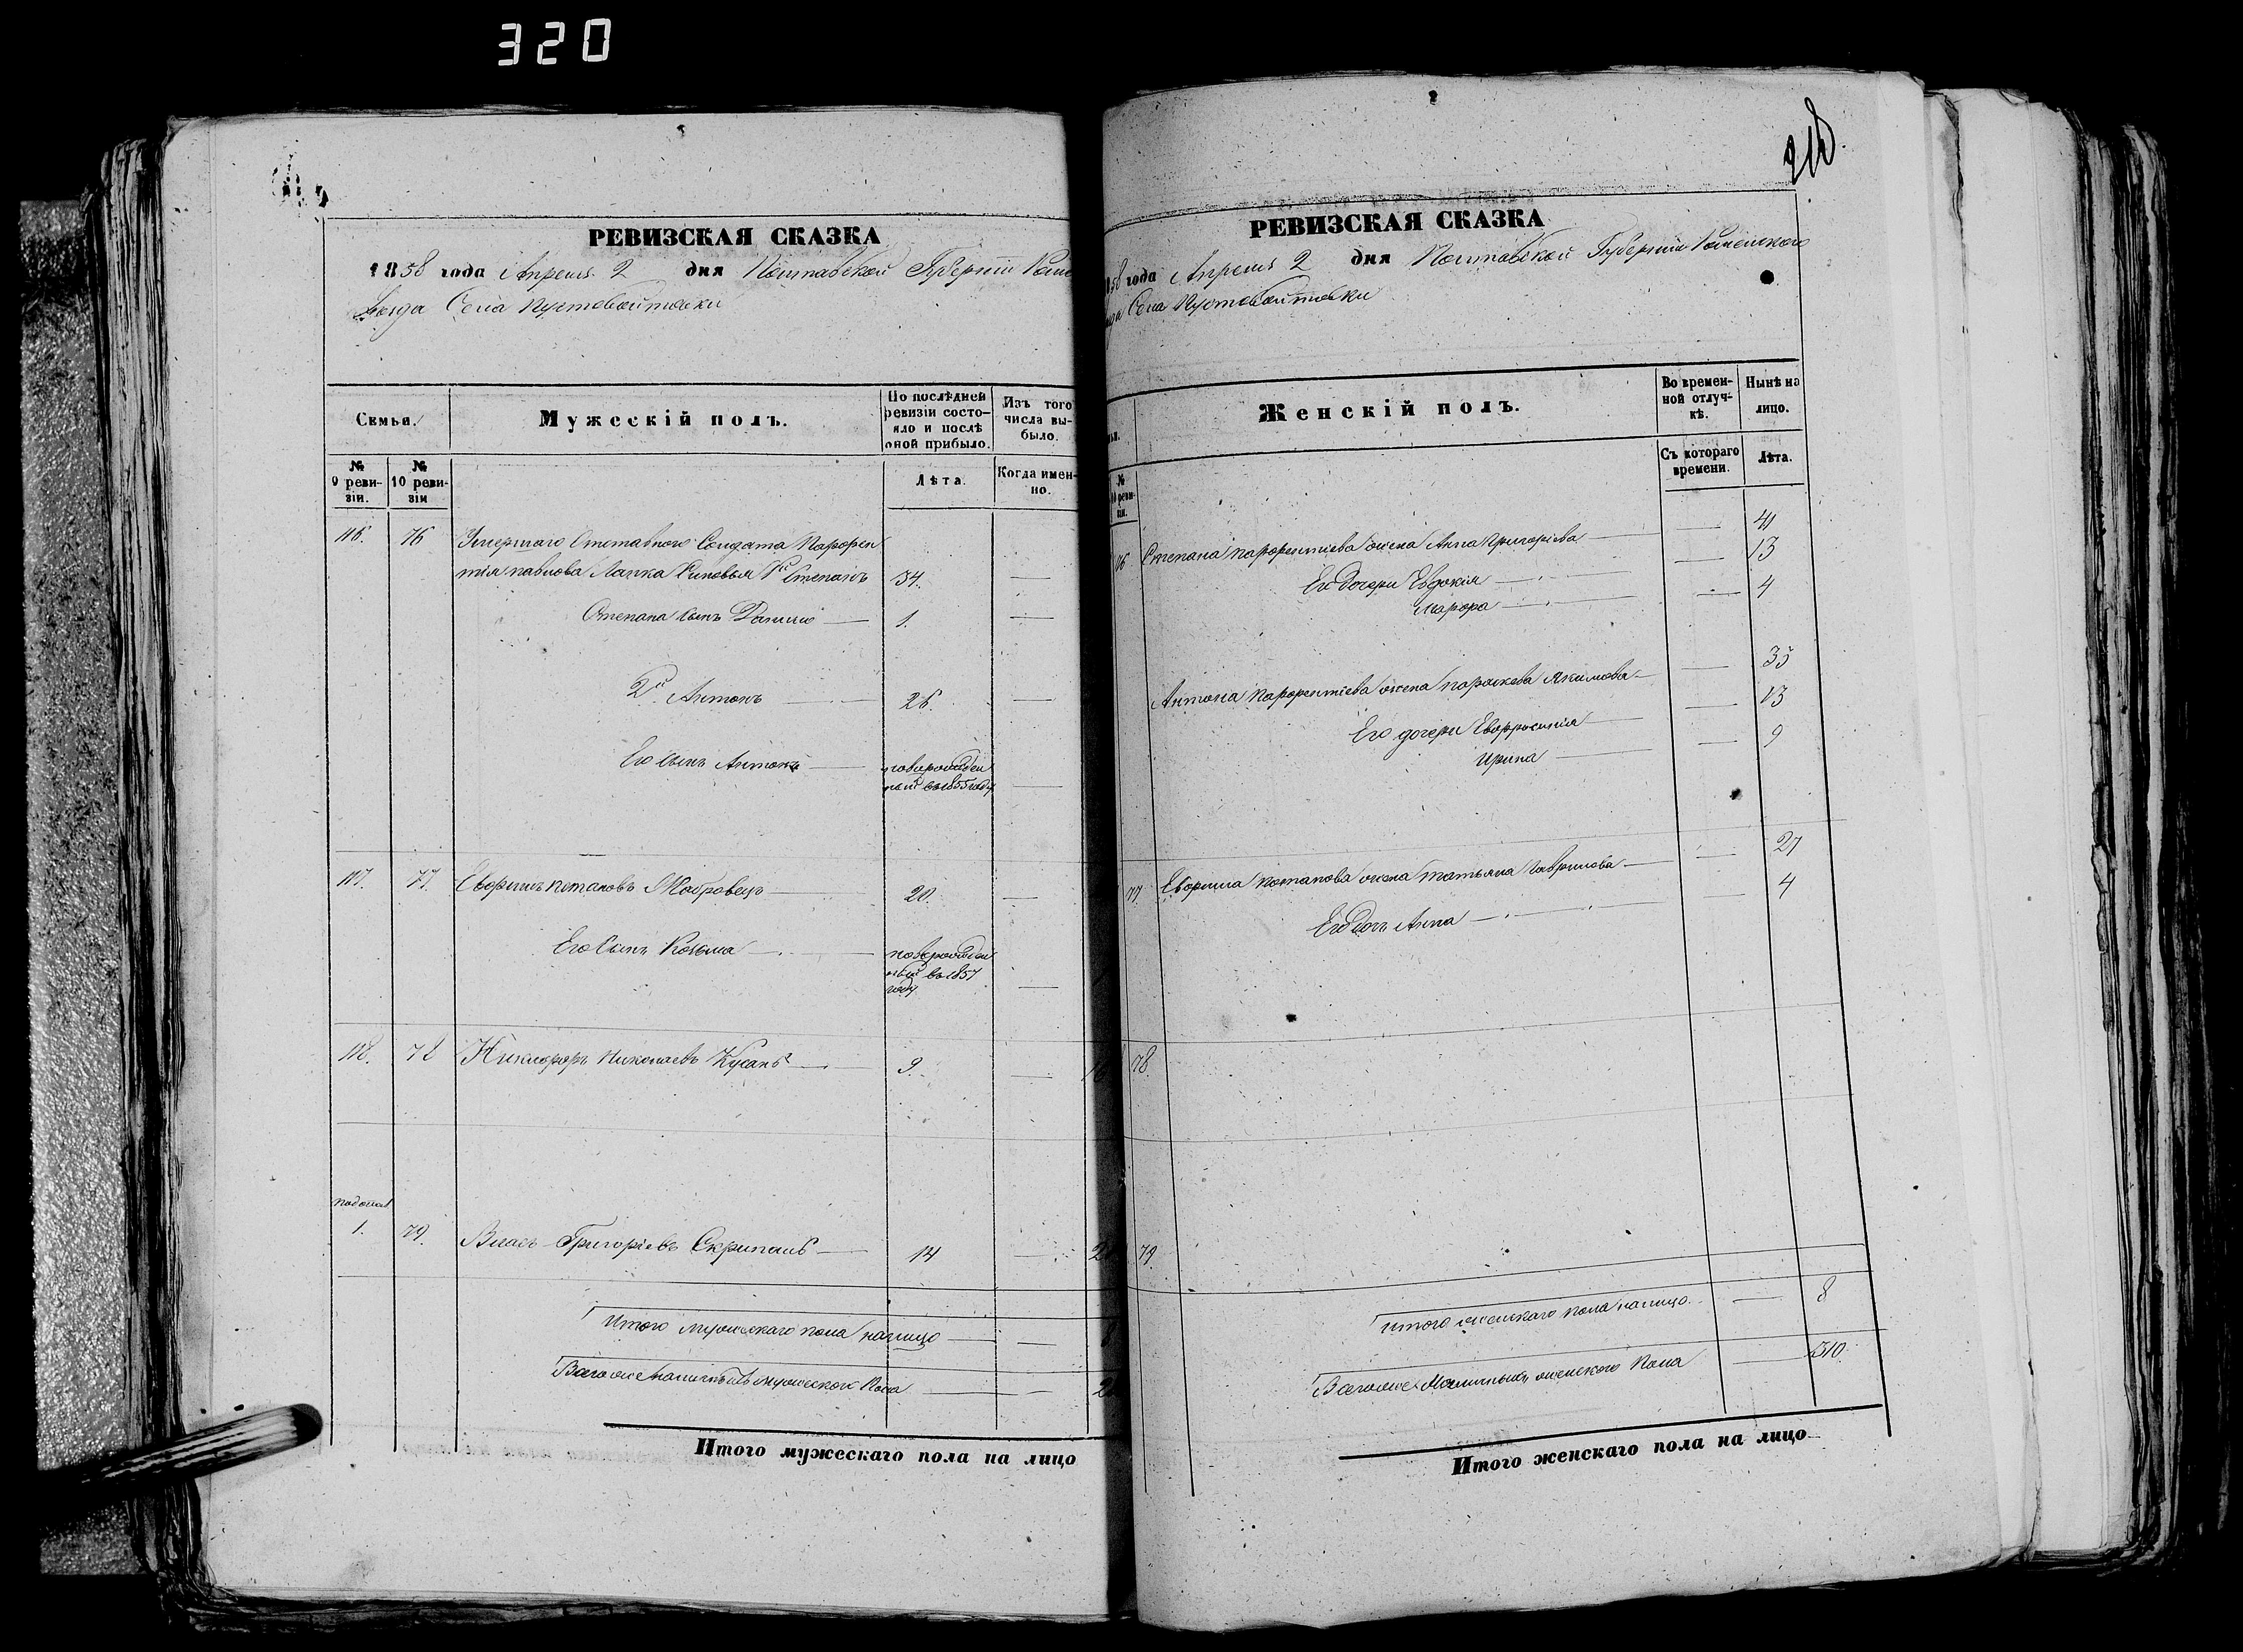 320
РЕВИЗСКАЯ СКАЗКА
1858 года Апреля 2 дня Полтавской Губерніи Роме
Уезда Села Пустовойтовки
Семьи.
Мужескій полъ.
По послѣдней ревизіи состо-
яло и послѣ
оной прибыло.
Изъ того
числа вы-
было.
№
9 реви-
зіи.
№
10 реви-
зіи
Лѣта.
Когда имен-
но.
116. 76 Умершаго Отставного Солдата Парфен
тія Павлова Лапка Сиповья 1й Степанъ 34.
Степана сынъ Данило 1.
2й Антонъ 26.
Его сынъ Антонъ новорожден
ный въ 1855 году
117. 77. Потаповъ 20.
Его Сынъ Козьма новорожден
ный въ 1857
году
118. 78 Никифоръ Николаевъ 9.
1. 79. Власъ Григоріевъ Скрипаль 14
Итого мужескаго пола налицо
Всего же мужеского Пола
Итого мужескаго пола на лицо
218.
РЕВИЗСКАЯ СКАЗКА
58 года Апреля 2 дня Полтавской Губерніи Роменского
Села Пустовойтовки
Женскій полъ.
Во времен-
ной отлуч-
кѣ.
Нынѣ на
лицо.
Съ котораго
времени.
Лѣта.
Степана Парфентіева жена Анна Григоріева 41
Его дочери Евдокія 13
Марфа 4
Антона Парфентіева жена Параскева Якимова 35
Его дочери Евфросинія 13
Ирина 9
77. Потапова жена Татьяна Гаврилова 27
Его дочь Анна 4
78.
79.
Итого женскаго пола налицо 8
Всего же женского Пола 310.
Итого женскаго пола на лицо